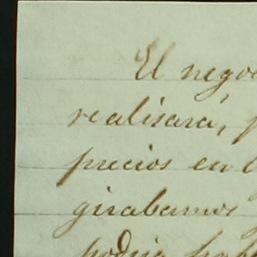 El nego
realisará,
precios en l
girabamos
podria hab